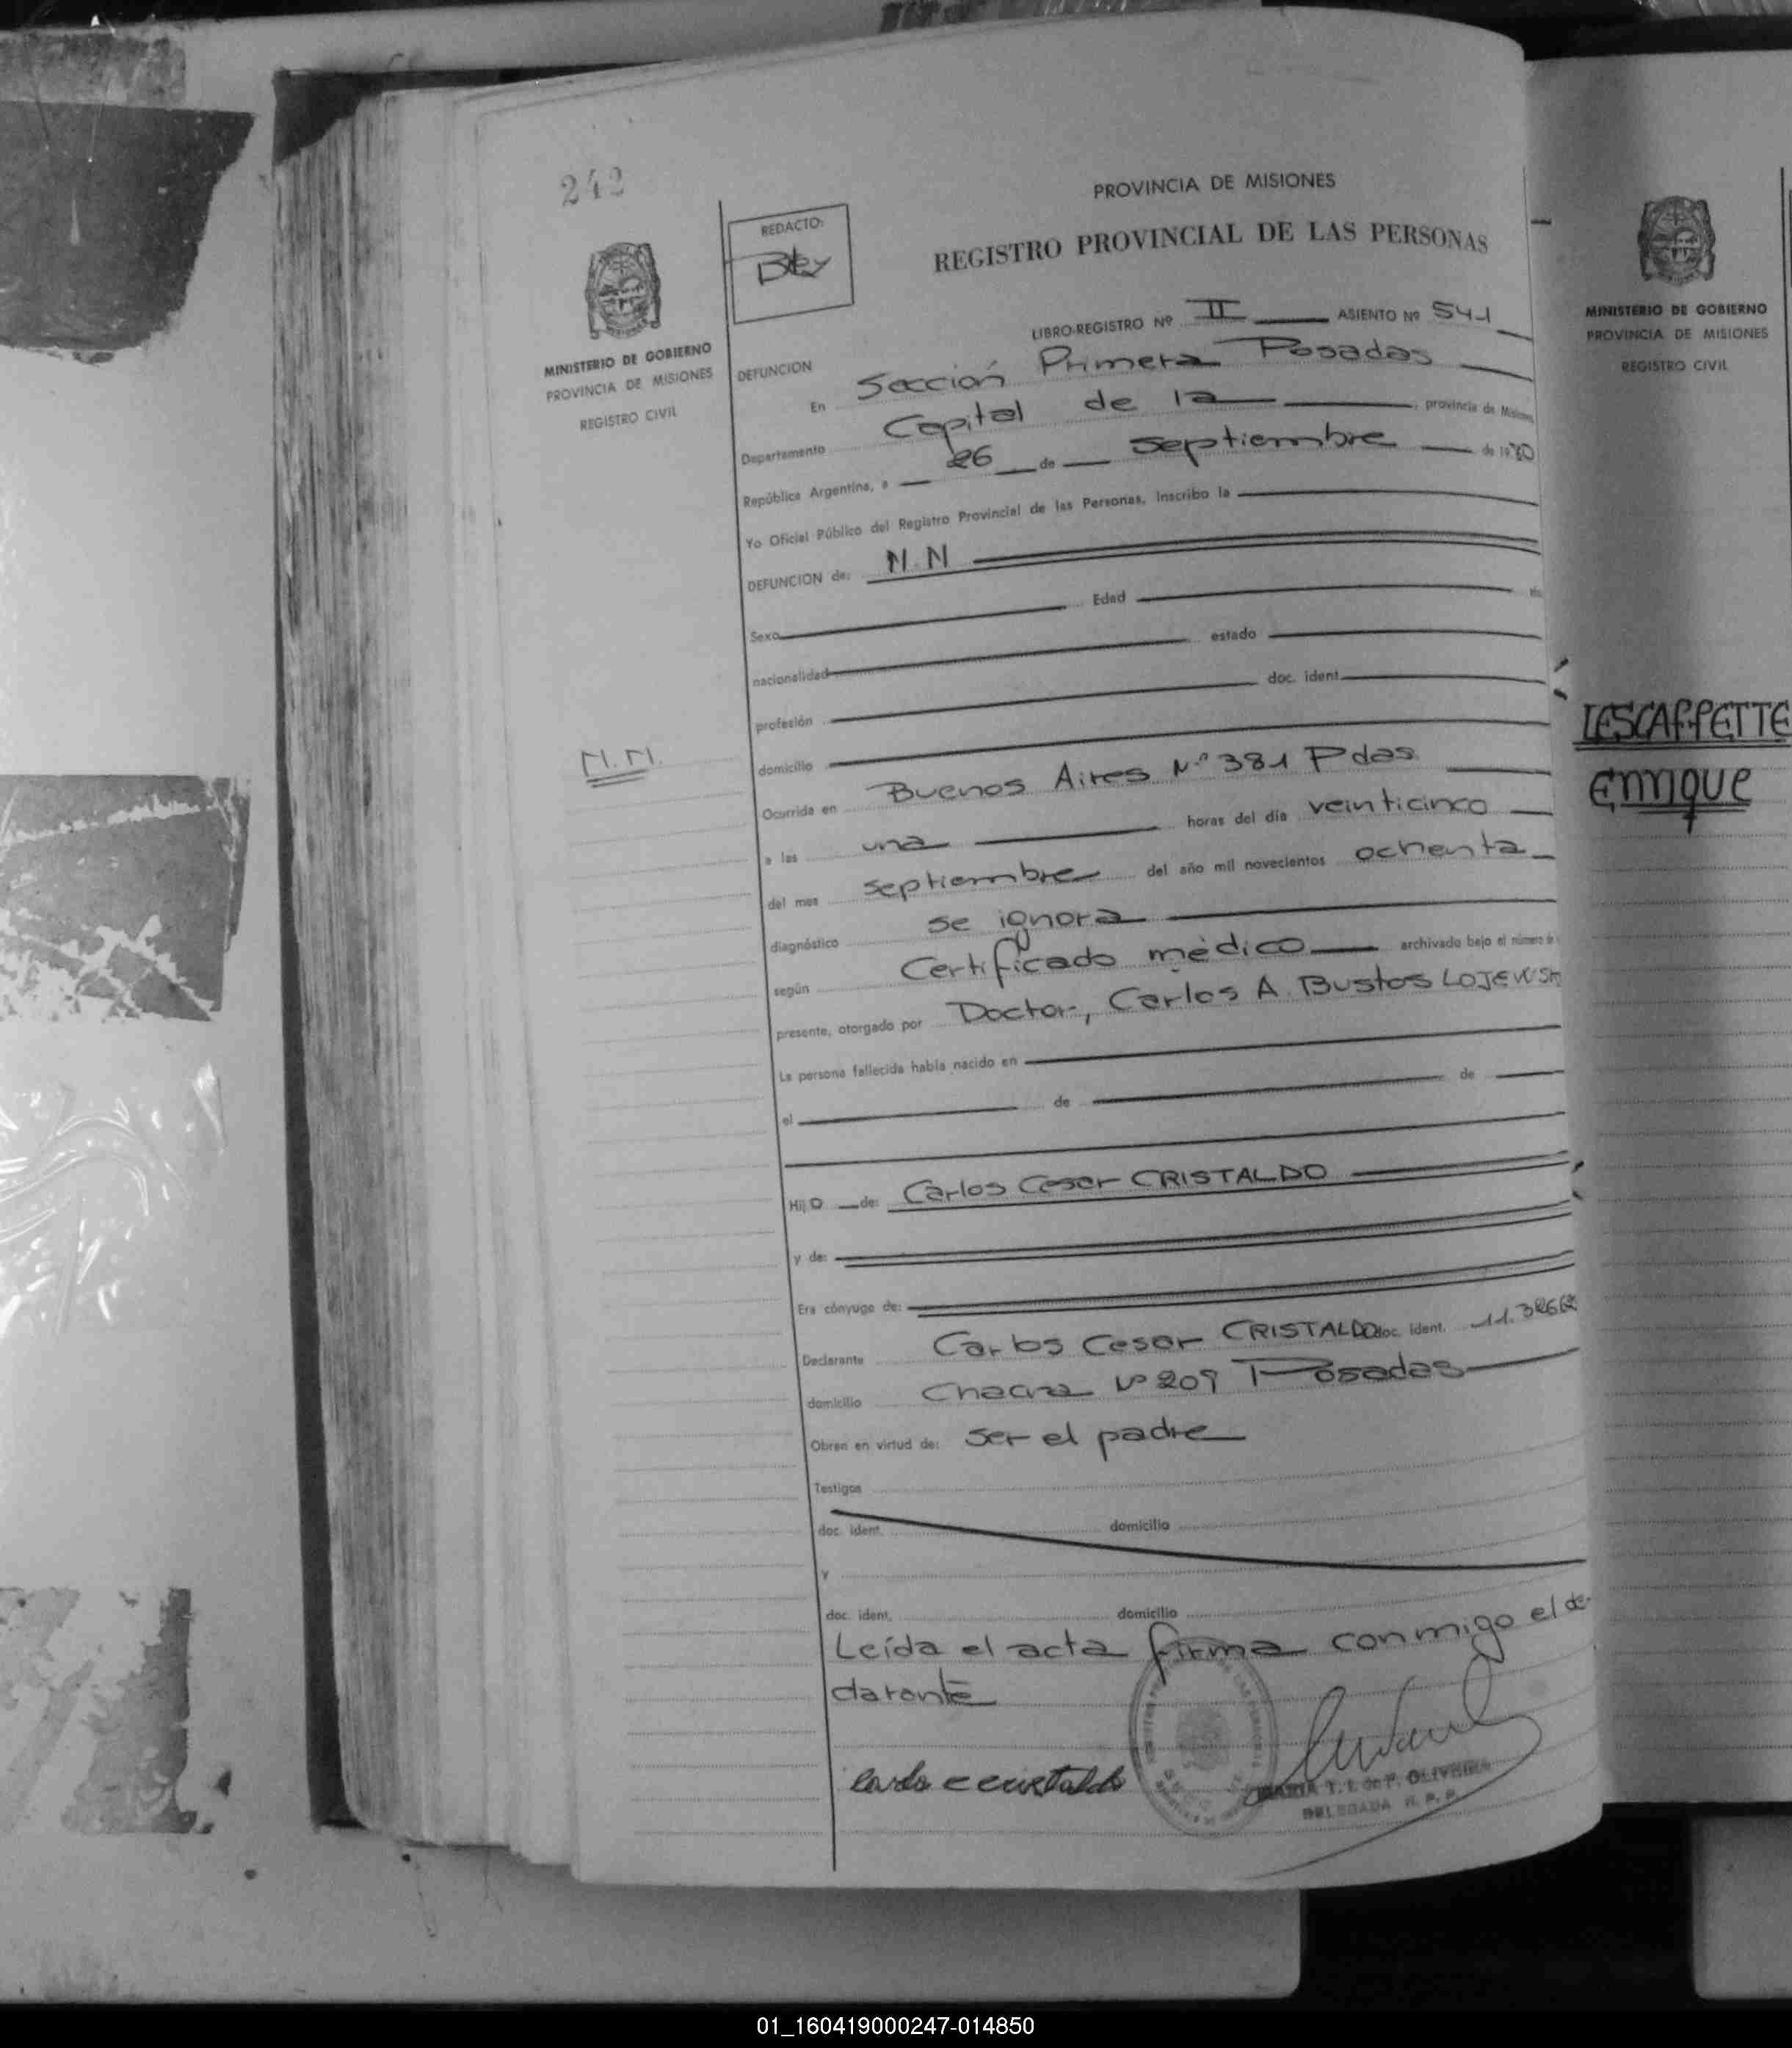 242
PROVINCIA DE MISIONES
REGISTRO PROVINCIAL DE LAS PERSONAS
REDACTO:
MINISTERIO DE GOBIERNO
PROVINCIA DE MISIONES
REGISTRO CIVIL
LIBRO-REGISTRO Nº II ASIENTO Nº 541
DEFUNCION
En Sección Primera Posadas
Departamento Capital de la provincia de Misiones
República Argentina, a 26 de septiembre de 1980
Yo Oficial Público del Registro Provincial de las Personas, Inscribo la
DEFUNCION de: N.N
Sexo Edad
nacionalidad estado
profesión doc. ident.
N.N.
domicilio
Ocurrida en Buenos Aires Nº 381 Pdas
a las una horas del día veinticinco
del mes septiembre del año mil novecientos ochenta
diagnóstico se ignora
según Certificado médico archivado bajo el número de
presente, otorgado por Doctor, Carlos A. Bustos LOJEWSK
La persona fallecida había nacido en
el de de
Hijo de: Carlos Cesar CRISTALDO
y de:
Era cónyuge de:
Declarante Carlos Cesar CRISTALDO doc. ident.
domicilio Chacra Nº 209 Posadas
Obran en virtud de: ser el padre
Testigos
doc. ident. domicilio
y
doc. ident. domicilio
Leída el acta firma conmigo el de-
clarante
MARIA T. I. de F. OLIVEIRA
DELEGADA R. P. P.
MINISTERIO DE GOBIERNO
PROVINCIA DE MISIONES
REGISTRO CIVIL
LESCAFFETTE
Enrique
01_160419000247-014850